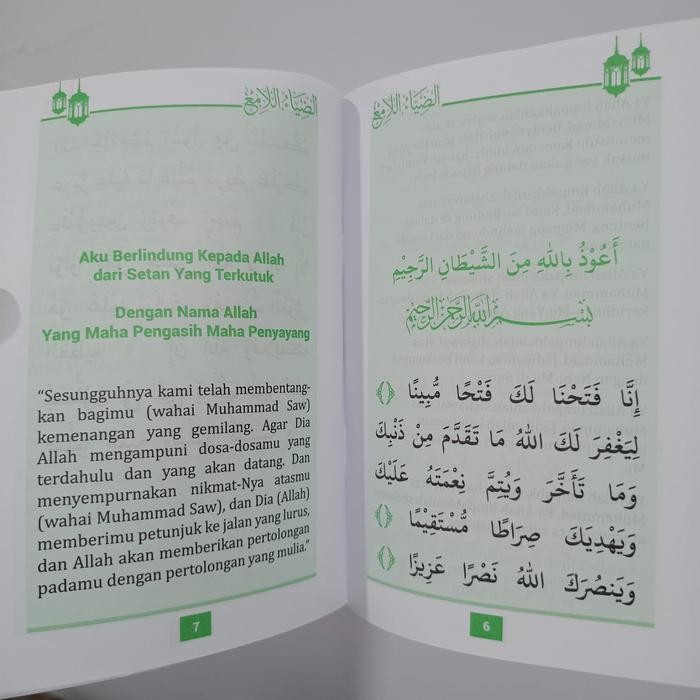 الضياء اللامع
أَعُوْذُ بِاللهِ مِنَ الشَّيْطَانِ الرَّجِيْمِ
بِسْمِ اللهِ الرَّحْمٰنِ الرَّحِيْمِ
إِنَّا فَتَحْنَا لَكَ فَتْحًا مُّبِينًا ﴿﴾
لِيَغْفِرَ لَكَ اللهُ مَا تَقَدَّمَ مِنْ ذَنْبِكَ
وَمَا تَأَخَّرَ وَيُتِمَّ نِعْمَتَهُ عَلَيْكَ
وَيَهْدِيَكَ صِرَاطًا مُّسْتَقِيْمًا ﴿﴾
وَيَنصُرَكَ اللهُ نَصْرًا عَزِيزًا ﴿﴾
6
الضياء اللامع
Aku Berlindung Kepada Allah
dari Setan Yang Terkutuk
Dengan Nama Allah
Yang Maha Pengasih Maha Penyayang
“Sesungguhnya kami telah membentang-
kan bagimu (wahai Muhammad Saw)
kemenangan yang gemilang. Agar Dia
Allah mengampuni dosa-dosamu yang
terdahulu dan yang akan datang. Dan
menyempurnakan nikmat-Nya atasmu
(wahai Muhammad Saw), dan Dia (Allah)
memberimu petunjuk ke jalan yang lurus,
dan Allah akan memberikan pertolongan
padamu dengan pertolongan yang mulia.”
7